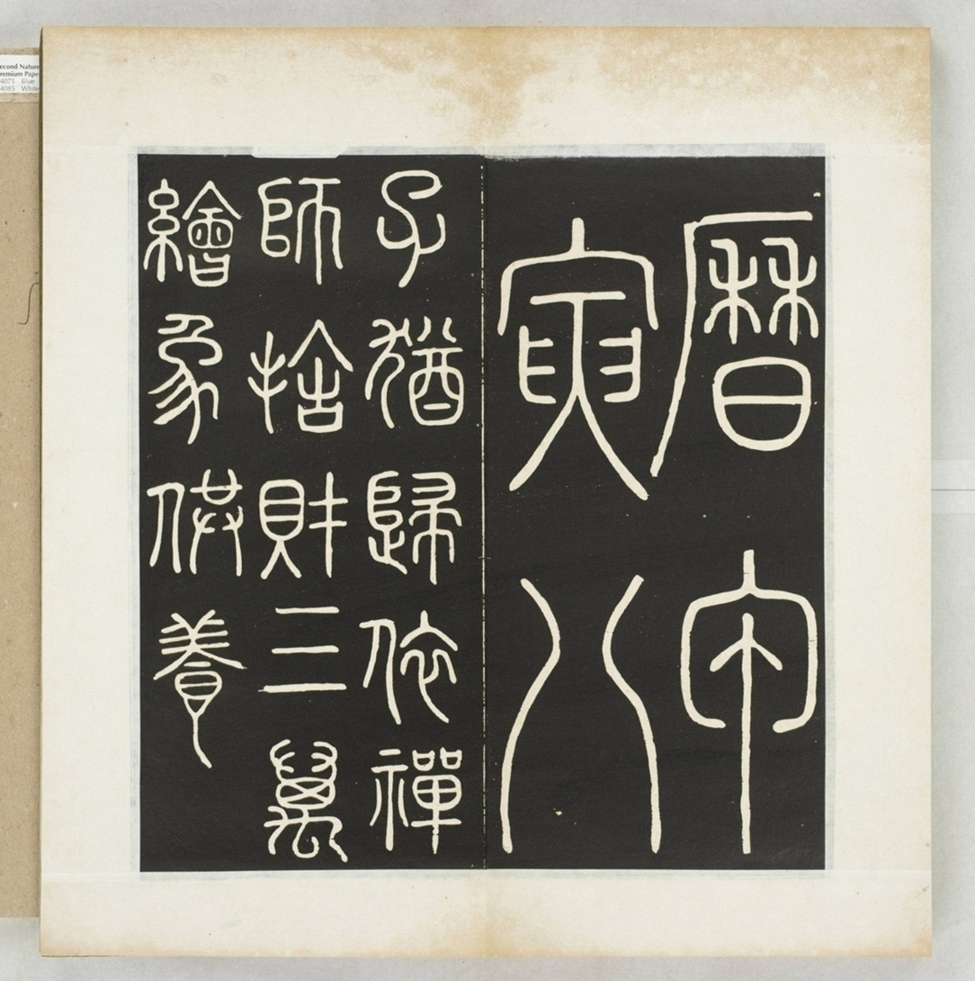 曆甲
寅八
子猶歸依禪
師捨財三萬
繪象供養
econd Nature
remium Pape
4075 Blue
4085 White